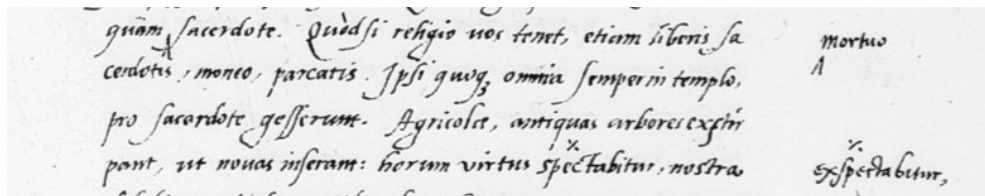 quàm sacerdote. Quòd si religio uos tenet, etiam liberis sa
mortuo
cerdotis, moneo, parcatis. Ipsi quoq; omnia semper in templo,
pro sacerdote gesserunt. Agricolæ, antiquas arbores exstir
pant, ut nouas inserant: horum virtus spectabitur, nostra
exspectabitur,